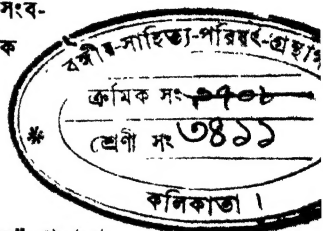 সংব-
ক
বঙ্গীয়-সাহিত্য-পরিষৎ-গ্রন্থা
ক্রমিক সং
শ্রেণী সং ৩৪১১
কলিকাতা ।